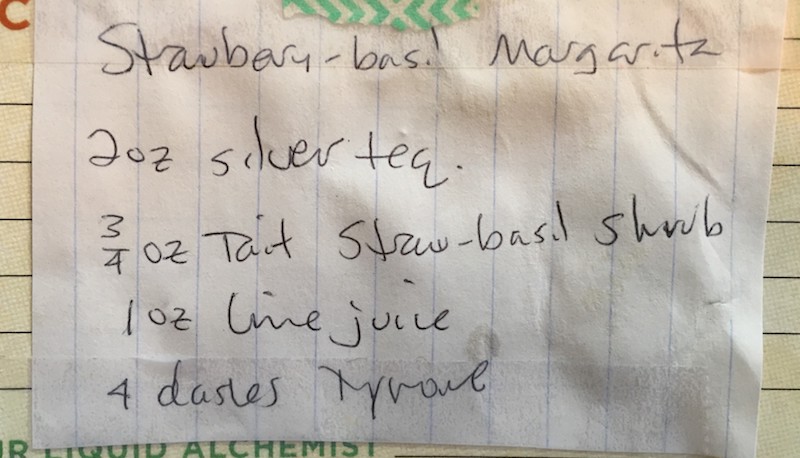 C
Strawbery-basil Margarita
2oz silver teq.
3/4 oz Tait Straw-basil shrub
1 oz lime juice
4 dashes
UR LIQUID ALCHEMIST